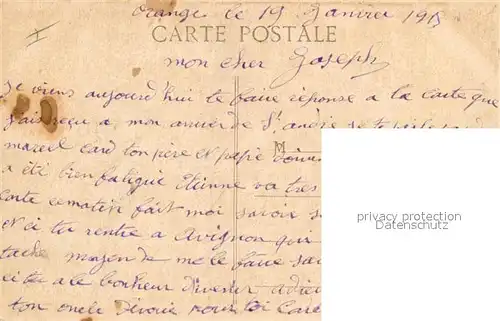 orange le 19 Janvier 1915
CARTE POSTALE
mon cher Joseph
Je viens aujourd'hui te faire réponse a la carte que
j'ais reçu a mon arrivée de St andré je te
marcel card ton père et pépé
M
a été bien fatigué Etienne va tres
carte ce matin fait moi savoir
et ci tu rentre a Avignon qui
tache moyen de me le faire
ci tu a le bonheur d'
ton oncle dévoué pour toi
privacy protection
Datenschutz